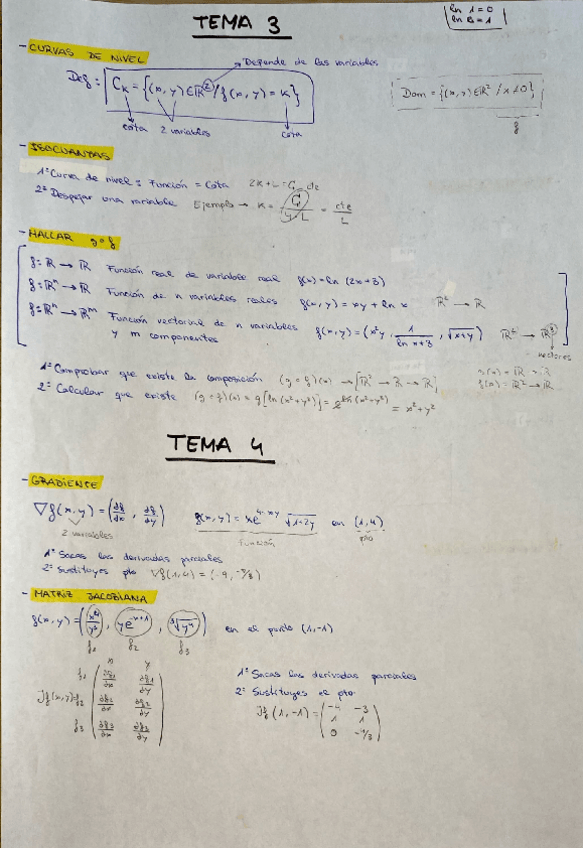 TEMA 3
ln 1 = 0
ln e = 1
- CURVAS DE NIVEL
Depende de las variables
Def: C_K = {(x, y) ∈ ℝ² / f(x, y) = K}
cota 2 variables cota
Dom = {(x, y) ∈ ℝ² / x ≠ 0}
f
- ISOCUANTAS
1º Curva de nivel: Función = Cota 2K + L = C
2º Despejar una variable Ejemplo → K =
= cte/L
- HALLAR g∘f
f: ℝ → ℝ Función real de variable real f(x) = ln (2x+3)
f: ℝⁿ → ℝ Función de n variables reales f(x, y) = xy + ln x ℝ² → ℝ
f: ℝⁿ → ℝᵐ Función vectorial de n variables y m componentes f(x, y) = (x²y, 1/(ln x+3), √(x+y)) ℝ² → ℝ³
vectores
1º Comprobar que existe la composición (g∘f)(x) → [ℝ² → ℝ → ℝ]
2º Calcular que existe (g∘f)(x) = g[ln(x²+y²)] = e^(ln(x²+y²)) = x²+y²
TEMA 4
- GRADIENTE
∇f(x, y) = (∂f/∂x, ∂f/∂y)
2 variables
f(x, y) = xe^(4-xy) √(1+2y) en (1,4)
función pto
1º Sacas las derivadas parciales
2º Sustituyes pto ∇f(1,4) = (-9, -8/3)
- MATRIZ JACOBIANA
f(x, y) = (x⁴/y³, ye^(x+1), ³√y⁴) en el punto (1,-1)
f₁ f₂ f₃
x y
f₁ ∂f₁/∂x ∂f₁/∂y
Jf(x,y)= f₂ ∂f₂/∂x ∂f₂/∂y
f₃ ∂f₃/∂x ∂f₃/∂y
1º Sacas las derivadas parciales
2º Sustituyes el pto
Jf (1, -1) = (-4 -3
1 1
0 -4/3)